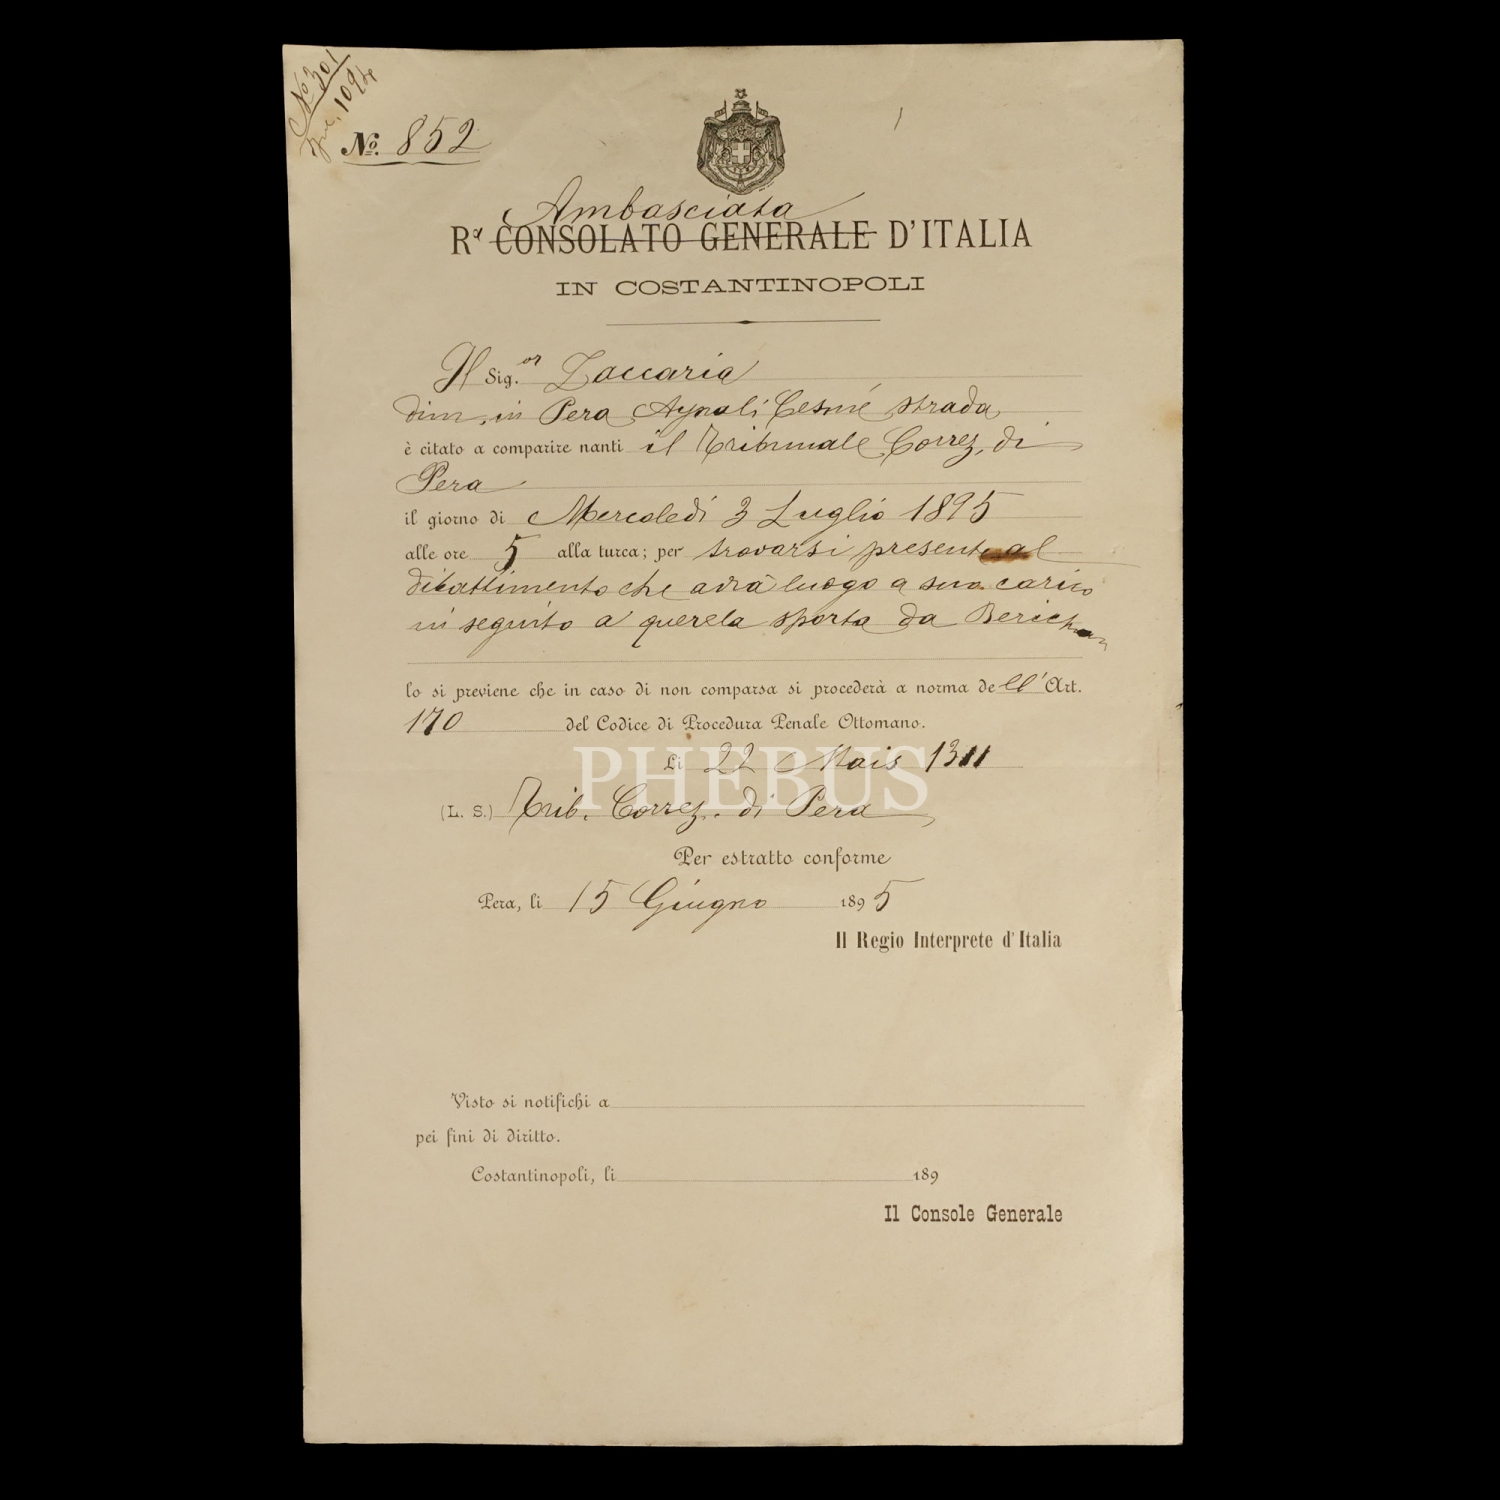 No 301
1094
No. 852
Ambasciata
Rª CONSOLATO GENERALE D'ITALIA
IN COSTANTINOPOLI
Il Sig.or Zaccaria
dim. in Pera Aynali Cesmé strada
è citato a comparire nanti il Tribunale Correz. di
Pera
il giorno di Mercoledi 3 Luglio 1895
alle ore 5 alla turca; per trovarsi presente al
dibattimento che avrà luogo a suo carico
in seguito a querela sporta da
lo si previene che in caso di non comparsa si procederà a norma dell' Art.
170 del Codice di Procedura Penale Ottomano.
Li 22 Mais 1311
(L. S.) Trib. Correz. di Pera
Per estratto conforme
Pera, li 15 Giugno 1895
Il Regio Interprete d'Italia
Visto si notifichi a
pei fini di diritto.
Costantinopoli, li 189
Il Console Generale
PHEBUS